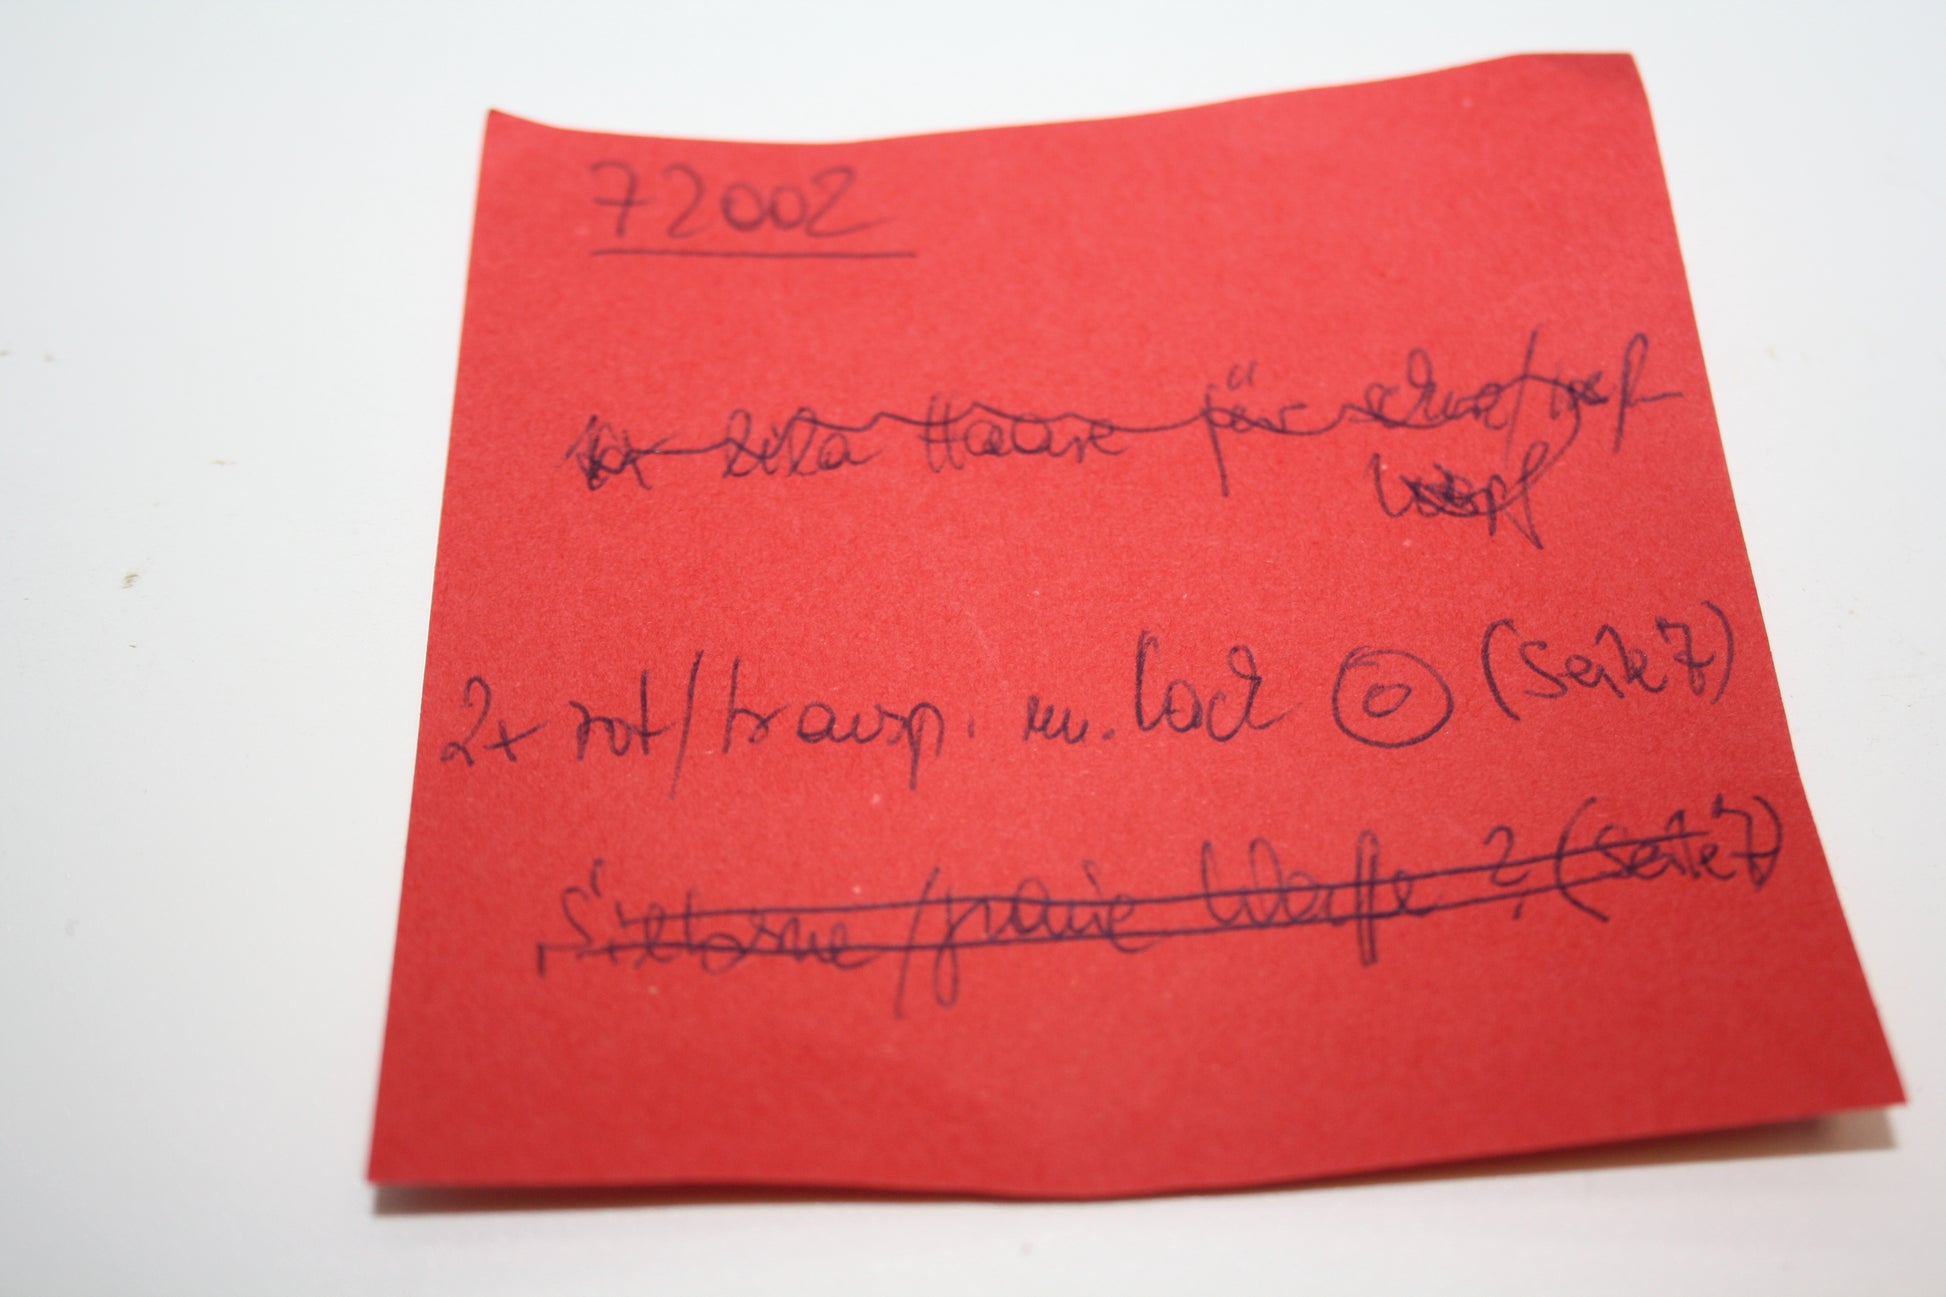 72002
lila Haare für schwarz/weiß
Kopf
2x rot/transp. m. Loch (Seite 7)
silberne/graue Waffe? (Seite 7)